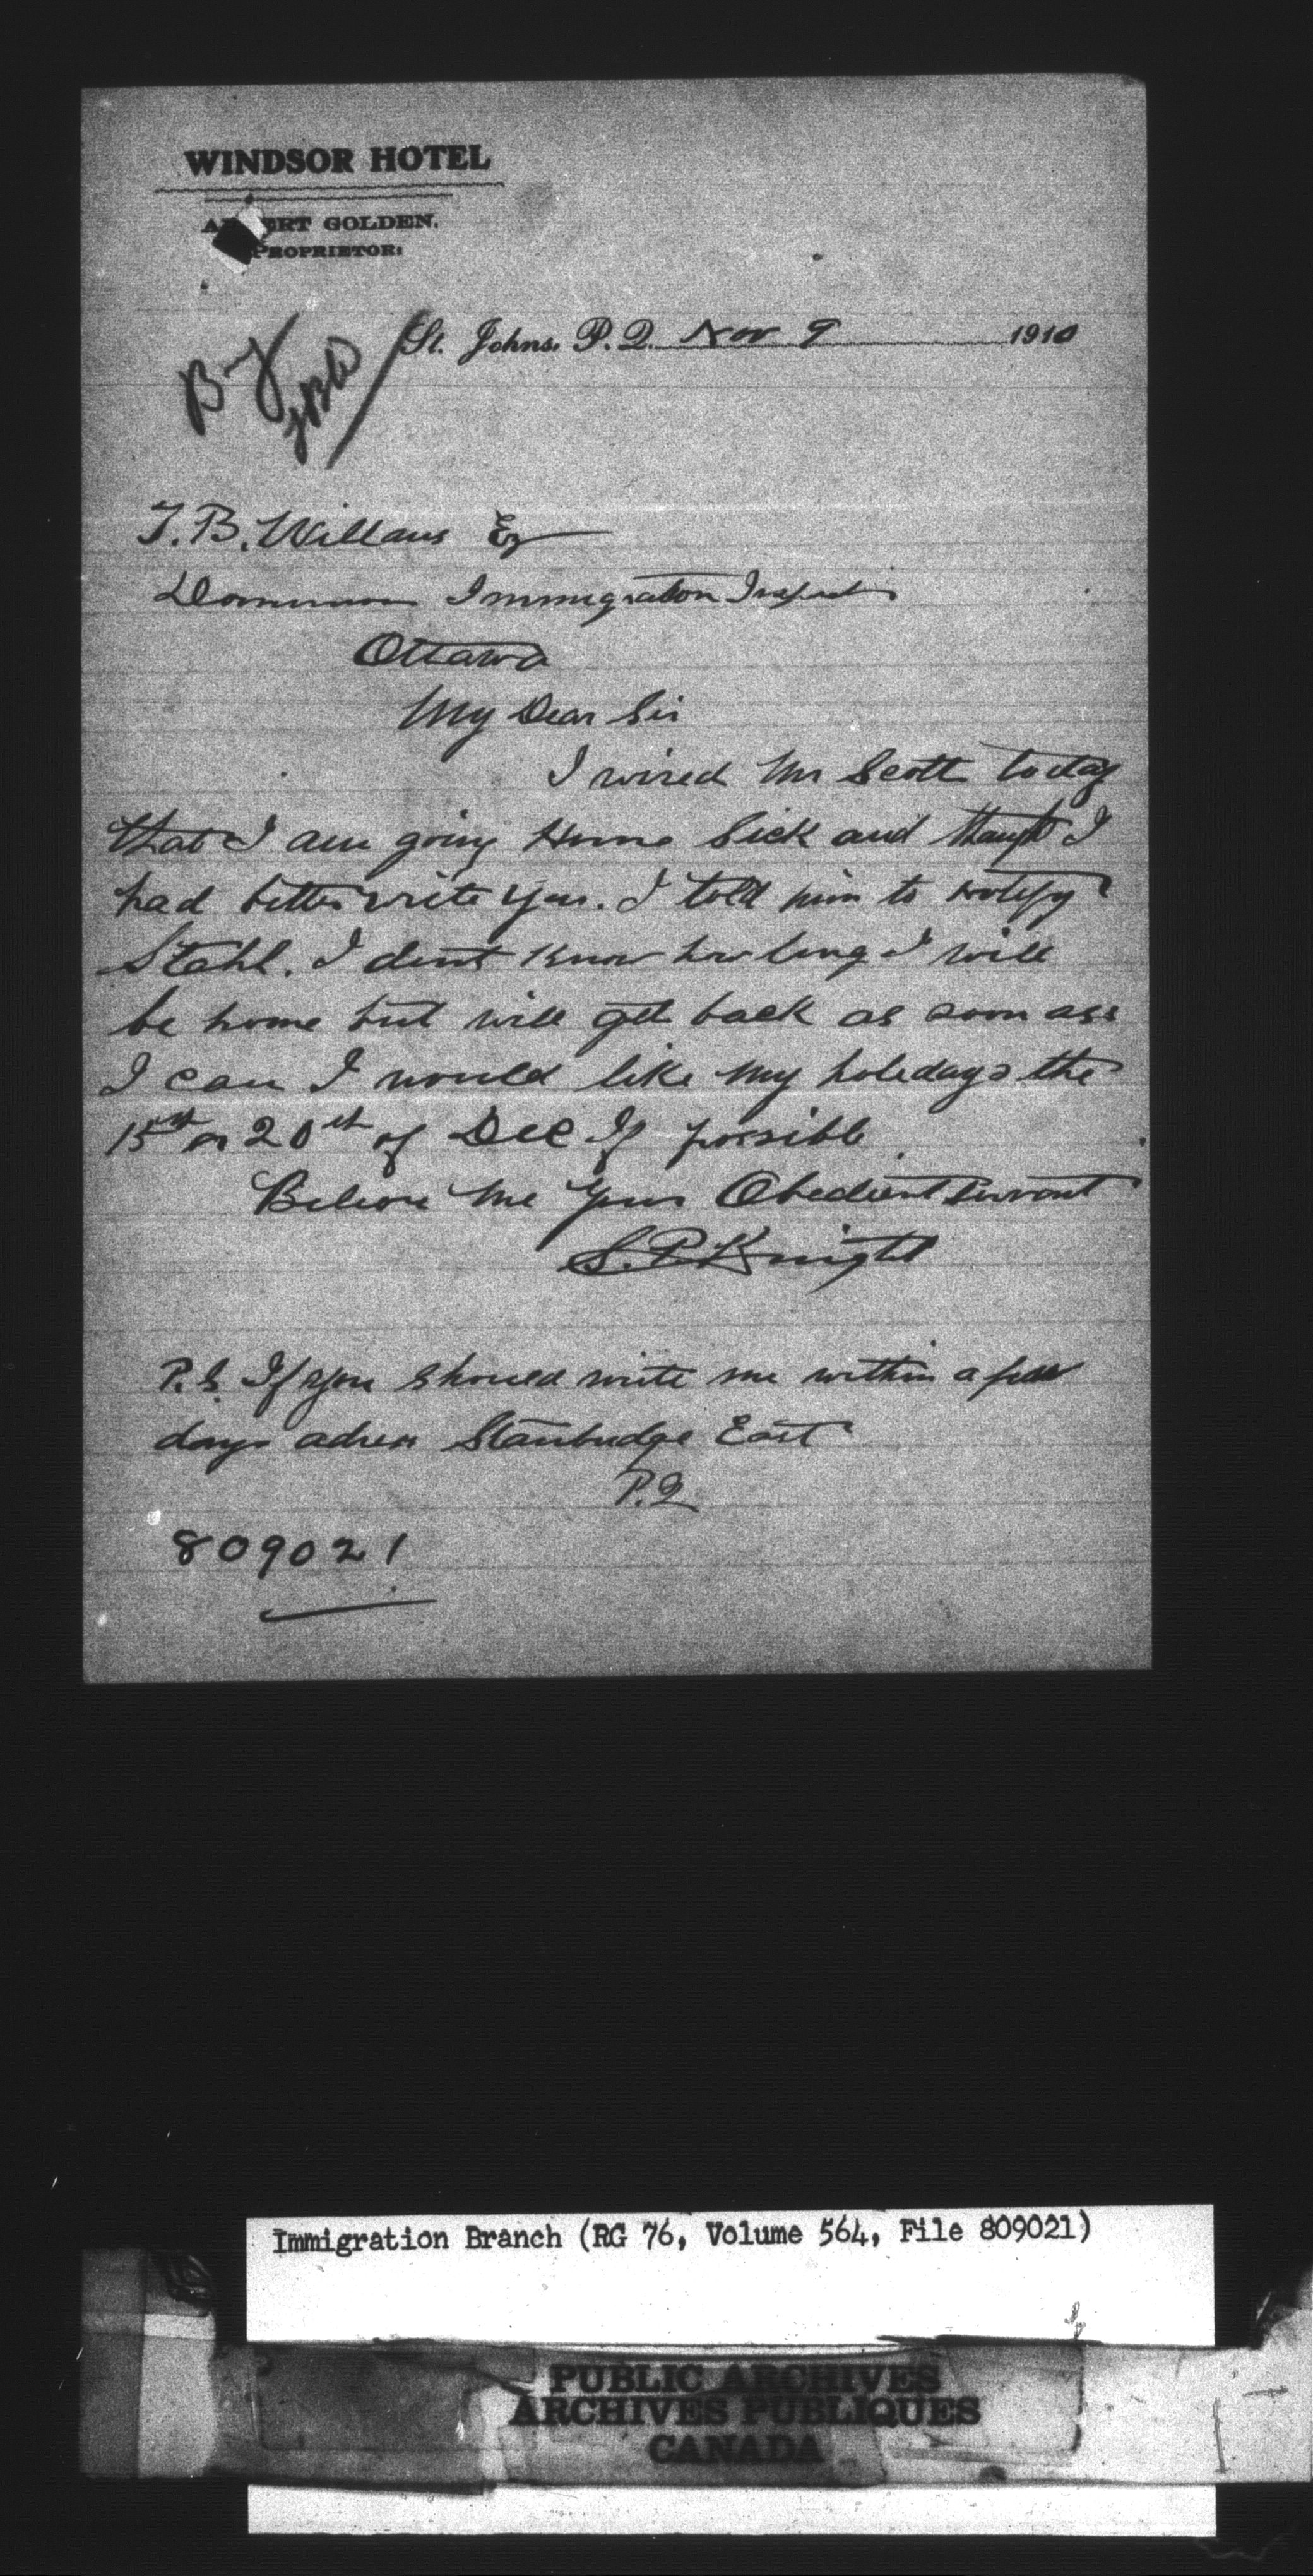 WINDSOR HOTEL
ERT GOLDEN.
PROPRIETOR:
St. Johns, P. Q. Nov 9 1910
T. B. Willans Eq
Dominion Immigration Inspector
Ottawa
My Dear Sir
I wired Mr Scott today
that I am going Home Sick and thaught I
had better write you. I told him to notify
Stehl. I dont know how long I will
be home but will get back as soon ass
I can I would like my holedays the
15th or 20th of Dec If possible
Believe Me Your Obedient Servant
S. P. Knight
P.S. If you should write me within a few
days adress Stanbridge East
P.Q
809021
Immigration Branch (RG 76, Volume 564, File 809021)
PUBLIC ARCHIVES
ARCHIVES PUBLIQUES
CANADA